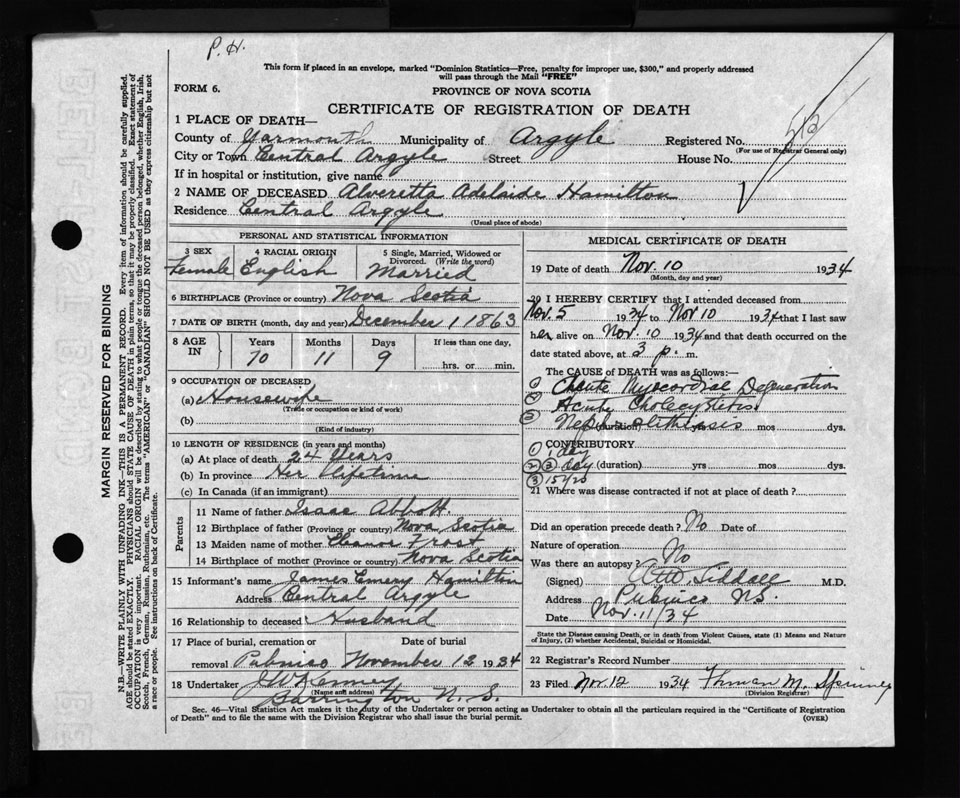 P. H.
This form if placed in an envelope, marked "Dominion Statistics—Free, penalty for improper use, $300," and properly addressed
will pass through the Mail "FREE"
FORM 6.
PROVINCE OF NOVA SCOTIA
CERTIFICATE OF REGISTRATION OF DEATH
1 PLACE OF DEATH—
County of Yarmouth Municipality of Argyle Registered No.
(For use of Registrar General only)
City or Town Central Argyle Street House No.
If in hospital or institution, give name
2 NAME OF DECEASED Alveretta Adelaide Hamilton
Residence Central Argyle
(Usual place of abode)
PERSONAL AND STATISTICAL INFORMATION
3 SEX Female
4 RACIAL ORIGIN English
5 Single, Married, Widowed or Divorced. (Write the word) Married
6 BIRTHPLACE (Province or country) Nova Scotia
7 DATE OF BIRTH (month, day and year) December 1 1863
8 AGE IN Years Months Days If less than one day,
70 11 9 hrs. or min.
9 OCCUPATION OF DECEASED
(a) Housewife
(Trade or occupation or kind of work)
(b)
(Kind of industry)
10 LENGTH OF RESIDENCE (in years and months)
(a) At place of death 24 Years
(b) In province Her lifetime
(c) In Canada (if an immigrant)
Parents
11 Name of father Isaac Abbott
12 Birthplace of father (Province or country) Nova Scotia
13 Maiden name of mother Eleanor Frost
14 Birthplace of mother (Province or country) Nova Scotia
15 Informant's name James Emery Hamilton
Address Central Argyle
16 Relationship to deceased Husband
17 Place of burial, cremation or removal Pubnico
Date of burial November 12 1934
18 Undertaker
(Name and address)
Barrington N. S.
MEDICAL CERTIFICATE OF DEATH
19 Date of death Nov. 10 1934
(Month, day and year)
20 I HEREBY CERTIFY that I attended deceased from
Nov. 5 1934 to Nov 10 1934 that I last saw
her alive on Nov. 10 1934 and that death occurred on the
date stated above, at 3 p. m.
The CAUSE OF DEATH was as follows:—
(1) Myocardial Degeneration
(2) Acute Cholecystitis
(3) Nephrolithiasis (duration) yrs mos dys.
CONTRIBUTORY
(1) 1 day
(2) day (duration) yrs mos dys.
(3) 15 yrs
21 Where was disease contracted if not at place of death?
Did an operation precede death? No Date of
Nature of operation
Was there an autopsy? No
(Signed) Siddall M.D.
Address Pubnico N.S.
Date Nov. 11/34
State the Disease causing Death, or in death from Violent Causes, state (1) Means and Nature
of Injury, (2) whether Accidental, Suicidal or Homicidal.
22 Registrar's Record Number
23 Filed Nov. 12 1934
(Division Registrar)
Sec. 46—Vital Statistics Act makes it the duty of the Undertaker or person acting as Undertaker to obtain all the particulars required in the "Certificate of Registration
of Death" and to file the same with the Division Registrar who shall issue the burial permit.
(OVER)
MARGIN RESERVED FOR BINDING
N.B.—WRITE PLAINLY WITH UNFADING INK—THIS IS A PERMANENT RECORD. Every item of information should be carefully supplied.
AGE should be stated EXACTLY. PHYSICIANS should STATE CAUSE OF DEATH in plain terms, so that it may be properly classified. Exact statement of
OCCUPATION is very important. RACIAL ORIGIN will be described by stating to what people or tongue the deceased person belonged, whether English, Irish,
Scotch, French, German, Russian, Ruthenian, etc. The terms "AMERICAN" or "CANADIAN" SHOULD NOT BE USED as they express citizenship but not
a race or people. See instructions on back of Certificate.